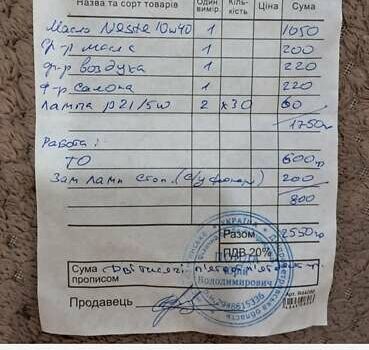 Назва та сорт товарів Один. вимір. Кіль-кість Ціна Сума
Масло Neste 10w40 1 1050
ф-р масла 1 200
ф-р воздуха 1 220
Ф-р салона 1 220
Лампа p21/5w 2 х30 60
1750
Работа:
ТО 600
Зам ламп стоп. (с/у фонар) 200
800
Разом 2550
ПДВ 20%
Сума прописом Дві тисячі п'ятсот п'ятдесят
Продавець
УКРАЇНА
Володимирович
2948615336